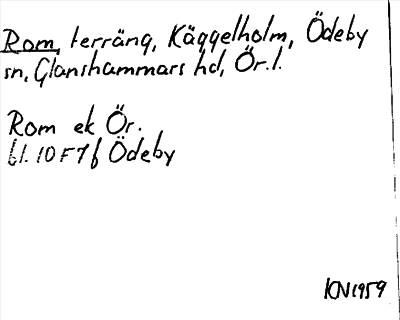 Rom, terräng, Käggelholm, Ödeby
sn, Glanshammars hd, Ör. l.
Rom ek Ör.
bl. 10 F 7 f Ödeby
KN 1959